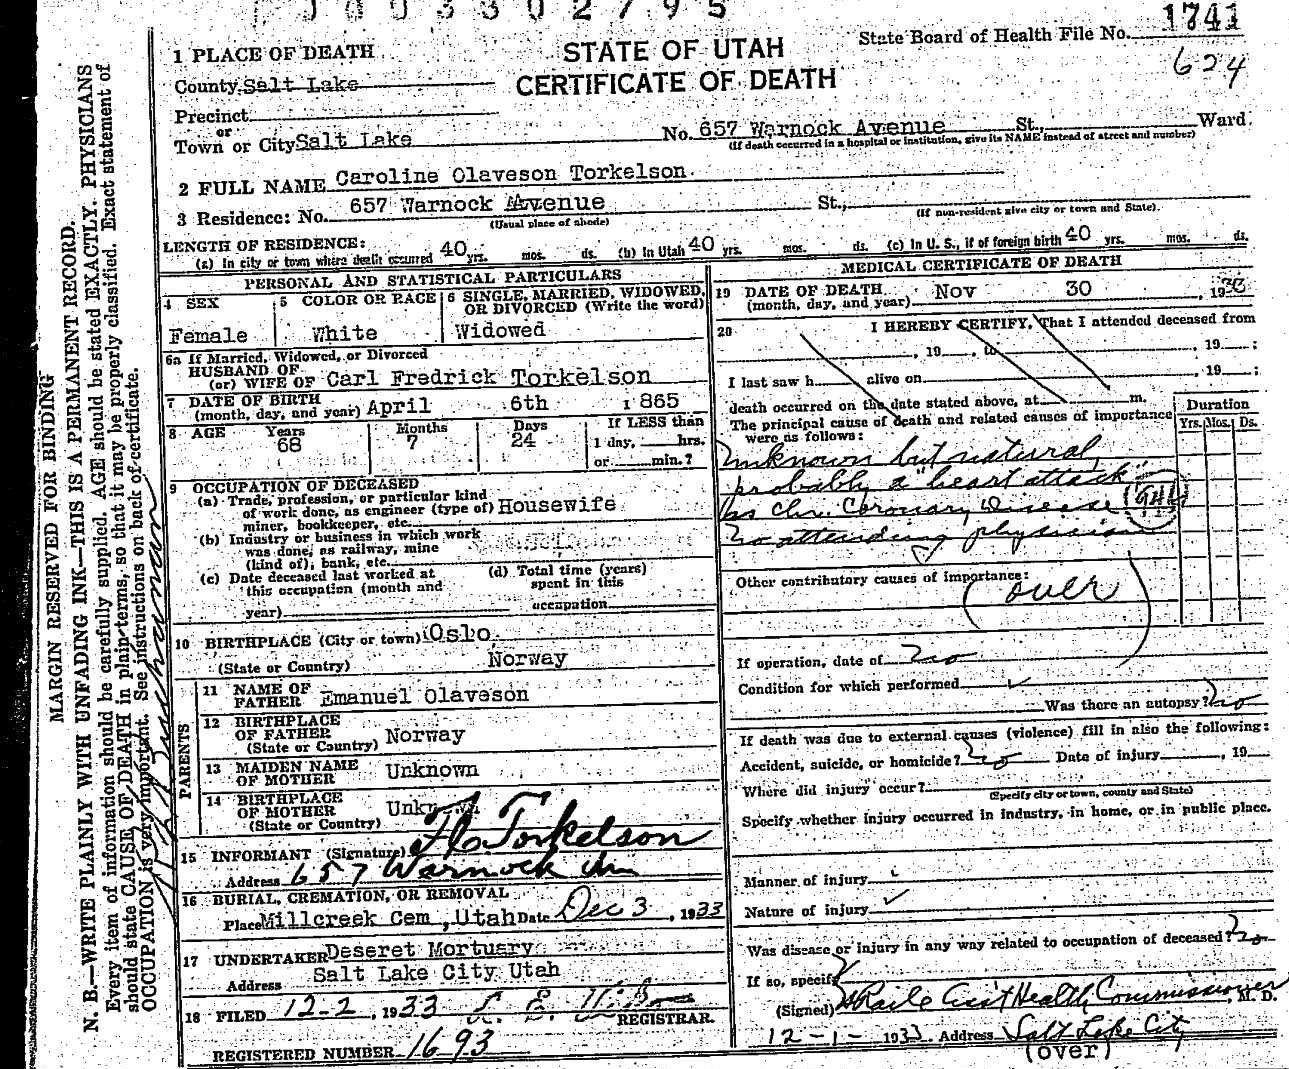 0003302795
STATE OF UTAH
CERTIFICATE OF DEATH
State Board of Health File No. 1741
624
1 PLACE OF DEATH
County Salt Lake
Precinct
or
Town or City Salt Lake No. 657 Warnock Avenue St., Ward.
(If death occurred in a hospital or institution, give its NAME instead of street and number)
2 FULL NAME Caroline Olaveson Torkelson
3 Residence: No. 657 Warnock Avenue St.,
(Usual place of abode) (If non-resident give city or town and State).
LENGTH OF RESIDENCE:
(a) In city or town where death occurred 40 yrs. mos. ds. (b) In Utah 40 yrs. mos. ds. (c) In U. S., if of foreign birth 40 yrs. mos. ds.
PERSONAL AND STATISTICAL PARTICULARS
4 SEX
Female
5 COLOR OR RACE
White
6 SINGLE, MARRIED, WIDOWED,
OR DIVORCED (Write the word)
Widowed
6a If Married, Widowed, or Divorced
HUSBAND OF
(or) WIFE OF Carl Fredrick Torkelson
7 DATE OF BIRTH
(month, day, and year) April 6th 1865
8 AGE Years Months Days If LESS than
68 7 24 1 day, hrs.
or min.?
9 OCCUPATION OF DECEASED
(a) Trade, profession, or particular kind
of work done, as engineer (type of) Housewife
miner, bookkeeper, etc.
(b) Industry or business in which work
was done, as railway, mine
(kind of), bank, etc.
(c) Date deceased last worked at
this occupation (month and
year)
(d) Total time (years)
spent in this
occupation
10 BIRTHPLACE (City or town) Oslo
(State or Country) Norway
PARENTS
11 NAME OF
FATHER Emanuel Olaveson
12 BIRTHPLACE
OF FATHER Norway
(State or Country)
13 MAIDEN NAME
OF MOTHER Unknown
14 BIRTHPLACE
OF MOTHER
(State or Country)
15 INFORMANT (Signature) Torkelson
Address 657 Warnock Av
16 BURIAL, CREMATION, OR REMOVAL
Place Millcreek Cem, Utah Date Dec 3, 1933
17 UNDERTAKER Deseret Mortuary
Address Salt Lake City Utah
18 FILED 12-2, 1933 REGISTRAR.
REGISTERED NUMBER 1693
MEDICAL CERTIFICATE OF DEATH
19 DATE OF DEATH
(month, day, and year) Nov 30, 1933
20 I HEREBY CERTIFY, That I attended deceased from
, 19 , to , 19 ;
I last saw h alive on , 19 ;
death occurred on the date stated above, at m.
The principal cause of death and related causes of importance
were as follows:
Duration
Yrs. Mos. Ds.
Unknown but natural,
probably a heart attack
as Chr. Coronary Disease
No attending physician
Other contributary causes of importance:
(over)
If operation, date of No
Condition for which performed
Was there an autopsy? No
If death was due to external causes (violence) fill in also the following:
Accident, suicide, or homicide? No Date of injury , 19
Where did injury occur?
(Specify city or town, county and State)
Specify whether injury occurred in industry, in home, or in public place.
Manner of injury
Nature of injury
Was disease or injury in any way related to occupation of deceased? No
If so, specify
(Signed) Asst Health Commissioner, M. D.
12-1- 1933. Address Salt Lake City
(over)
MARGIN RESERVED FOR BINDING
N. B.—WRITE PLAINLY WITH UNFADING INK—THIS IS A PERMANENT RECORD.
Every item of information should be carefully supplied. AGE should be stated EXACTLY. PHYSICIANS
should state CAUSE OF DEATH in plain terms, so that it may be properly classified. Exact statement of
OCCUPATION is very important. See instructions on back of certificate.